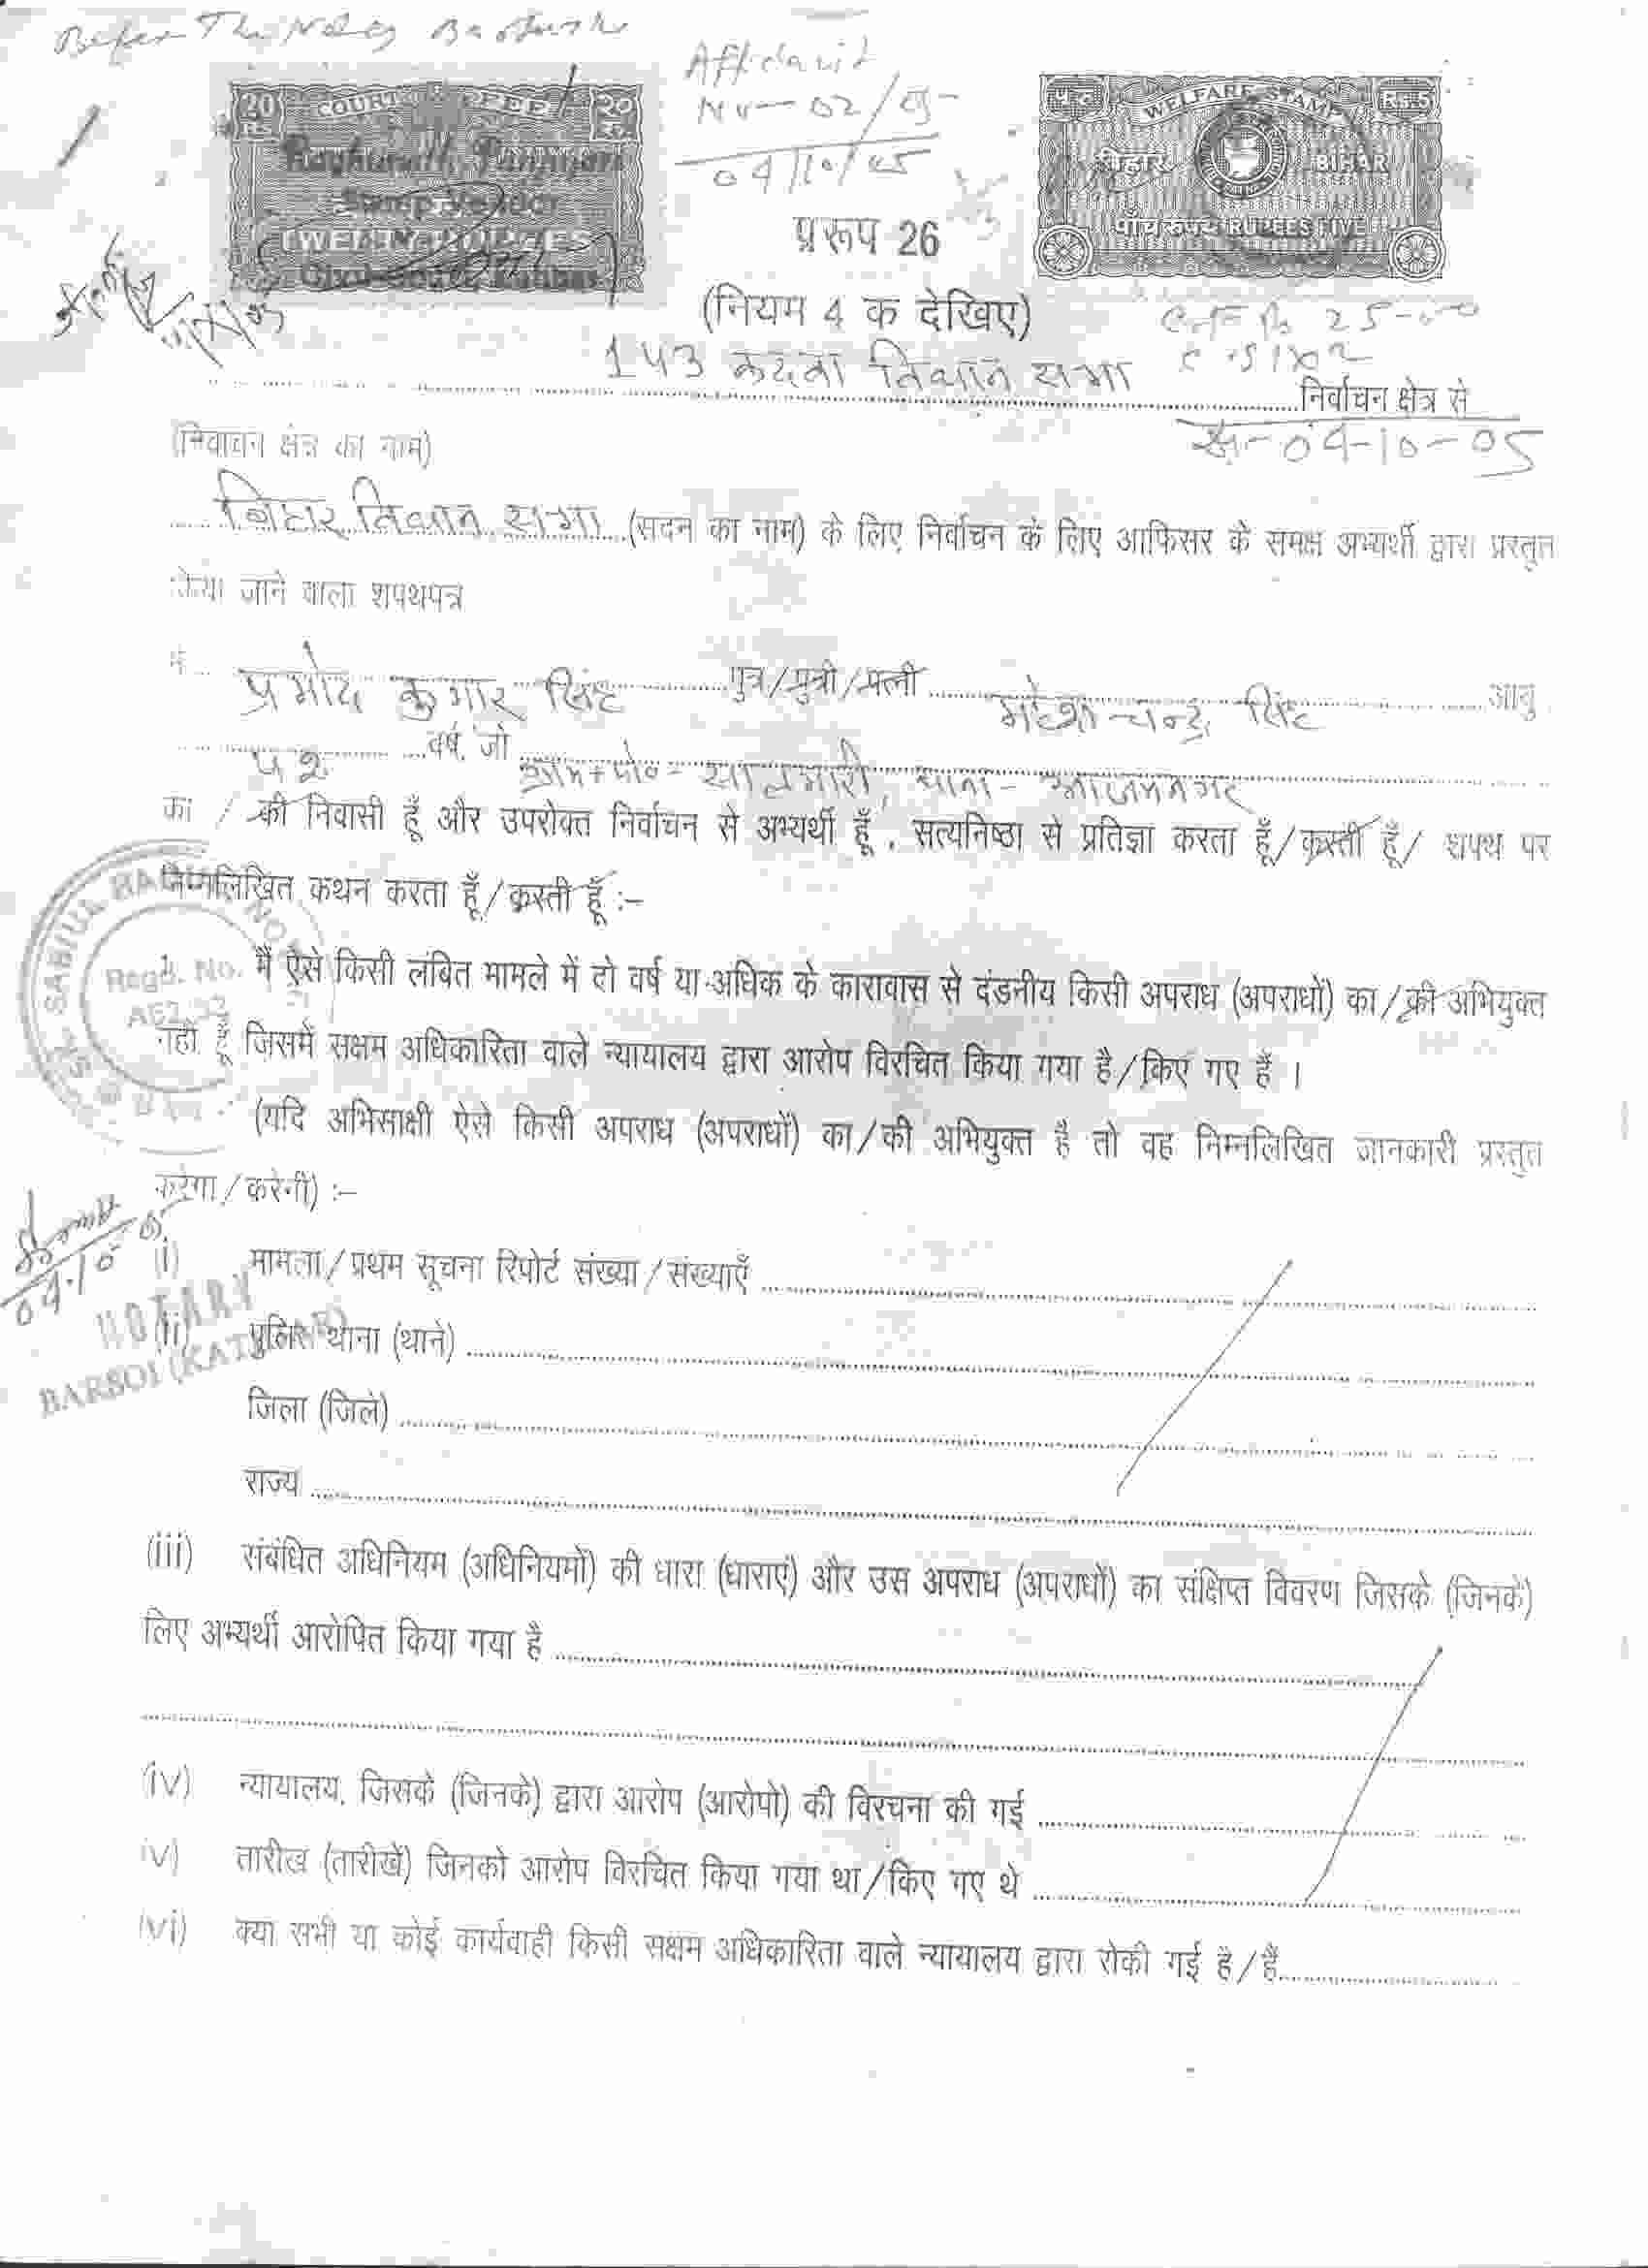 Before The Notary
Affidavit
No - 02/05
04/10/05
20 COURT FEE 20
RS.
Stamp Vendor
TWENTY RUPEES
WELFARE STAMP Rs.5
बिहार BIHAR
पाँच रुपये RUPEES FIVE
प्ररूप 26
(नियम 4 क देखिए)
25-00
143 कदवा विधान सभा निर्वाचन क्षेत्र से
04-10-05
(निर्वाचन क्षेत्र का नाम)
बिहार विधान सभा (सदन का नाम) के लिए निर्वाचन के लिए आफिसर के समक्ष अभ्यर्थी द्वारा प्रस्तुत
किया जाने वाला शपथपत्र
मैं प्रमोद कुमार सिंह पुत्र/पुत्री/पत्नी महेश चन्द्र सिंह आयु
४२ वर्ष, जो ग्राम+पो०- सालमारी, थाना- आजमनगर
का / की निवासी हूँ और उपरोक्त निर्वाचन से अभ्यर्थी हूँ, सत्यनिष्ठा से प्रतिज्ञा करता हूँ/करती हूँ/ शपथ पर
निम्नलिखित कथन करता हूँ/करती हूँ :–
1. मैं ऐसे किसी लंबित मामले में दो वर्ष या अधिक के कारावास से दंडनीय किसी अपराध (अपराधों) का/की अभियुक्त
नहीं हूँ जिसमें सक्षम अधिकारिता वाले न्यायालय द्वारा आरोप विरचित किया गया है/किए गए हैं ।
(यदि अभिसाक्षी ऐसे किसी अपराध (अपराधों) का/की अभियुक्त है तो वह निम्नलिखित जानकारी प्रस्तुत
करेगा/करेगी) :–
Regd. No.
04.10.05
NOTARY
BARSOI (KATIHAR)
(i) मामला/प्रथम सूचना रिपोर्ट संख्या/संख्याएँ
(ii) पुलिस थाना (थाने)
जिला (जिले)
राज्य
(iii) संबंधित अधिनियम (अधिनियमों) की धारा (धाराएं) और उस अपराध (अपराधों) का संक्षिप्त विवरण जिसके (जिनके)
लिए अभ्यर्थी आरोपित किया गया है
(iv) न्यायालय, जिसके (जिनके) द्वारा आरोप (आरोपो) की विरचना की गई
(v) तारीख (तारीखें) जिनको आरोप विरचित किया गया था/किए गए थे
(vi) क्या सभी या कोई कार्यवाही किसी सक्षम अधिकारिता वाले न्यायालय द्वारा रोकी गई है/हैं